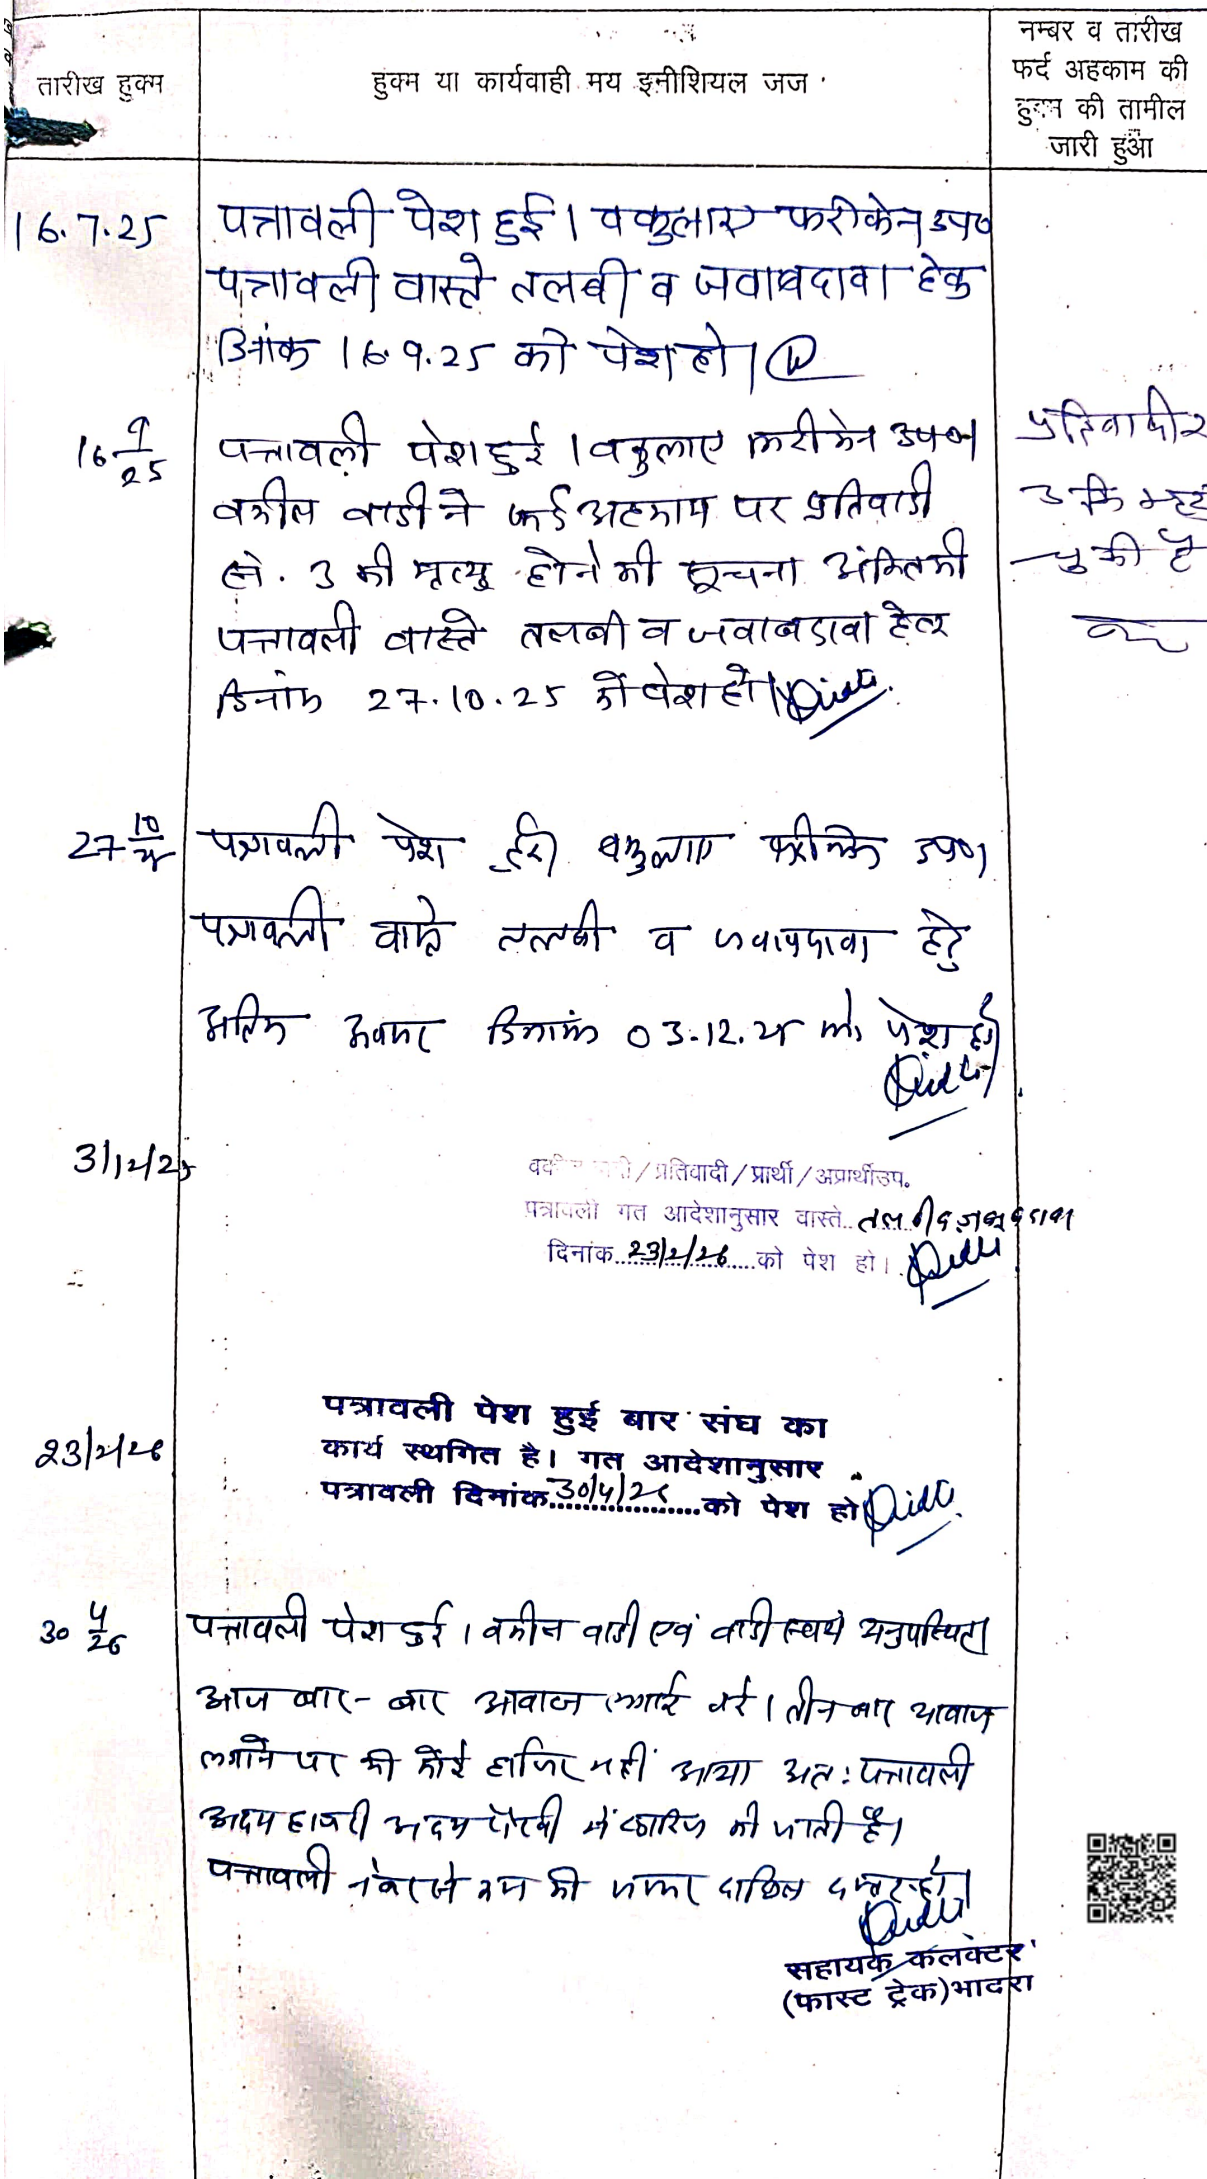 तारीख हुक्म
हुक्म या कार्यवाही मय इनीशियल जज
नम्बर व तारीख
फर्द अहकाम की
हुक्म की तामील
जारी हुआ
16.7.25
पत्रावली पेश हुई। वकुलाए फरीकेन उप०
पत्रावली वास्ते तलबी व जवाबदावा हेतु
दिनांक 16.9.25 को पेश हो।
16 9/25
पत्रावली पेश हुई। वकुलाए फरीकेन उप०।
वकील वादी ने फर्द अहकाम पर प्रतिवादी
सं. 3 की मृत्यु होने की सूचना अंकित की
पत्रावली वास्ते तलबी व जवाबदावा हेतु
दिनांक 27.10.25 को पेश हो।
प्रतिवादी सं
3 कि मृत्यु
चुकी है
27 10/25
पत्रावली पेश हुई। वकुलाए फरीकेन उप०।
पत्रावली वास्ते तलबी व जवाबदावा हेतु
अंतिम अवसर दिनांक 03.12.25 को पेश हो
3/12/25
वकील वादी/प्रतिवादी/प्रार्थी/अप्रार्थीउप.
पत्रावली गत आदेशानुसार वास्ते..तलबी व जवाबदावा
दिनांक..23/2/26..को पेश हो।
23/2/26
पत्रावली पेश हुई बार संघ का
कार्य स्थगित है। गत आदेशानुसार
पत्रावली दिनांक..30/4/26..को पेश हो
30 4/26
पत्रावली पेश हुई। वकील वादी एवं वादी स्वयं अनुपस्थित।
आज बार-बार आवाज लगाई गई। तीन बार आवाज
लगाने पर भी कोई हाजिर नहीं आया अतः पत्रावली
अदम हाजरी अदम पैरवी में खारिज की जाती है।
पत्रावली नंबर से कम की जाकर दाखिल दफ्तर हो।
सहायक कलक्टर
(फास्ट ट्रेक)भादरा